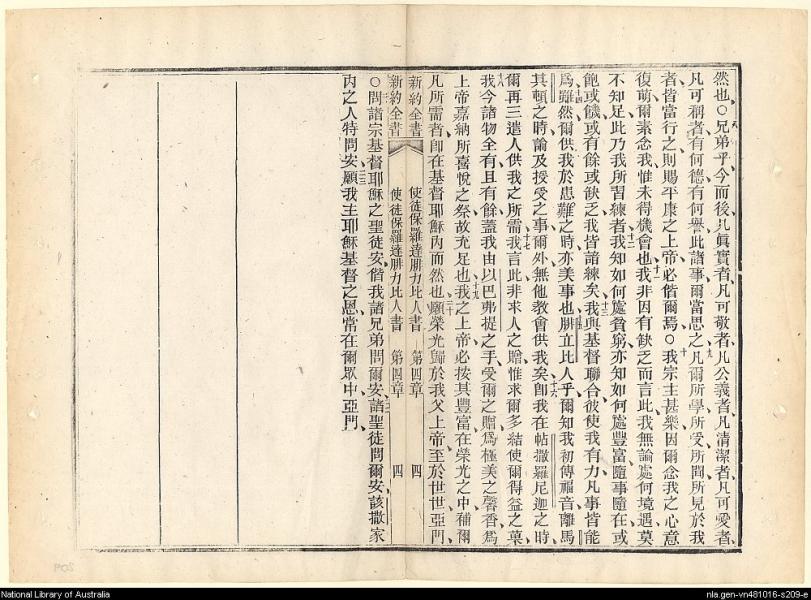 然也○兄弟乎今而後凡眞實者凡可敬者凡公義者凡清潔者凡可愛者
凡可稱者有何德有何譽此諸事爾當思之凡爾所學所受所聞所見於我
者皆當行之則賜平康之上帝必偕爾焉○我宗主甚樂因爾念我之心意
復萌爾素念我惟未得機會也我非因有缺乏而言此我無論處何境遇莫
不知足此乃我所習練者我知如何處貧窮亦知如何處豐富隨事隨在或
飽或饑或有餘或缺乏我皆諳練矣我與基督聯合彼使我有力凡事皆能
爲雖然爾供我於患難之時亦美事也腓立比人乎爾知我初傳福音離馬
其頓之時論及授受之事爾外無他教會供我矣卽我在帖撒羅尼迦之時
爾再三遣人供我之所需我言此非求人之贈惟求爾多結使爾得益之菓
我今諸物全有且有餘蓋我由以巴弗提之手受爾之贈爲極美之馨香爲
上帝嘉納所喜悅之祭故充足也我之上帝必按其豐富在榮光之中補爾
凡所需者卽在基督耶穌內而然也願榮光歸於我父上帝至於世世亞門
新約全書 使徒保羅達腓力比人書 第四章 四
新約全書 使徒保羅達腓力比人書 第四章 四
○問諸宗基督耶穌之聖徒安偕我諸兄弟問爾安諸聖徒問爾安該撒家
內之人特問安願我主耶穌基督之恩常在爾眾中亞門
National Library of Australia
nla.gen-vn481016-s209-e